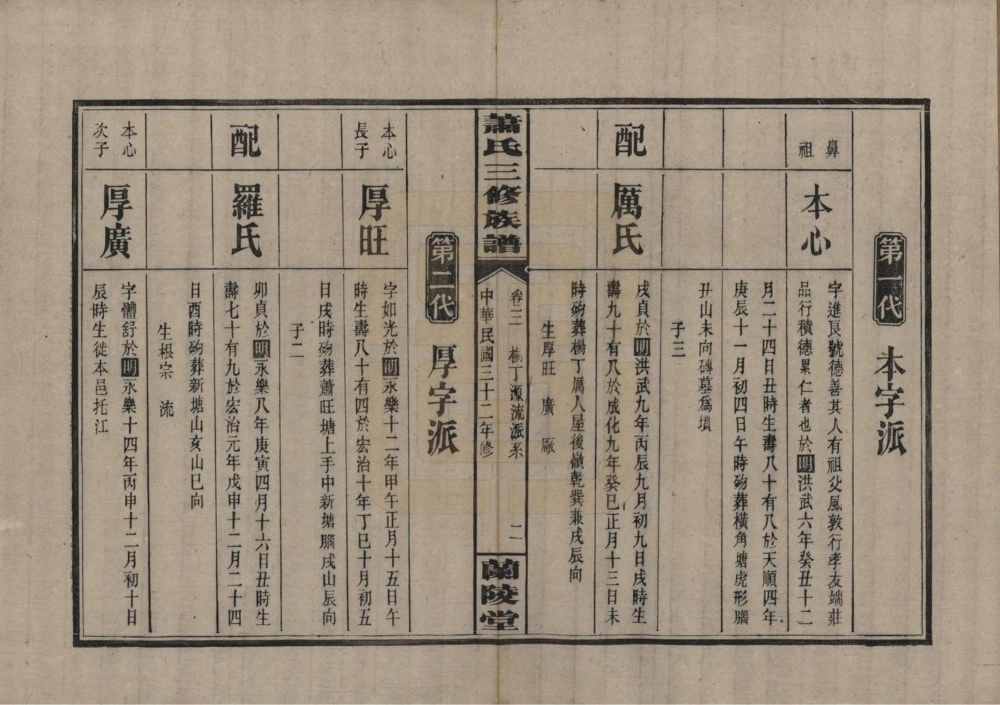 第一代 本字派
鼻祖
本心
字進艮號德善其人有祖父風敦行孝友端莊
品行積德累仁者也於明洪武六年癸丑十二
月二十四日丑時生壽八十有八於天順四年
庚辰十一月初四日午時歿葬橫角塘虎形腦
丑山未向磚墓爲墳
子三
配
厲氏
戌貞於明洪武九年丙辰九月初九日戌時生
壽九十有八於成化九年癸巳正月十三日未
時歿葬楊丁厲人屋後嶺乾巽兼戌辰向
生厚旺 廣 廠
蕭氏三修族譜
卷三 楊丁源流派系 二
中華民國三十二年修
蘭陵堂
第二代 厚字派
本心長子
厚旺
字如光於明永樂十二年甲午正月十五日午
時生壽八十有四於宏治十年丁巳十月初五
日戌時歿葬蕭旺塘上手中新塘腦戌山辰向
子二
配
羅氏
卯貞於明永樂八年庚寅四月十六日丑時生
壽七十有九於宏治元年戊申十二月二十四
日酉時歿葬新塘山亥山巳向
生根宗 流
本心次子
厚廣
字體舒於明永樂十四年丙申十二月初十日
辰時生徙本邑托江